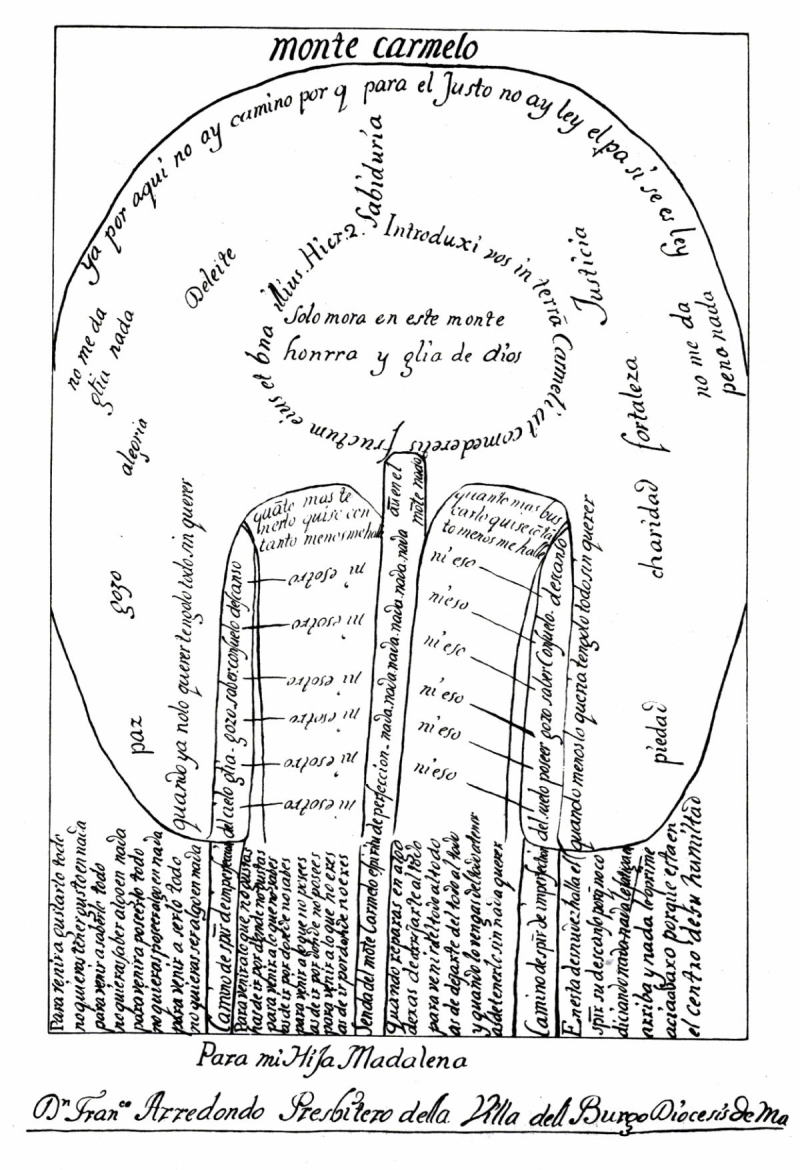 monte carmelo
ya por aqui no ay camino por q para el Justo no ay ley el pa si se es ley
Sabiduria
Deleite
Justicia
Introduxi vos in terrā Carmeli ut comederetis fructum eius et bna illius. Hier. 2.
Solo mora en este monte
honrra y glia de dios
no me da
glia nada
no me da
pena nada
alegria
fortaleza
gozo
charidad
paz
piedad
quando ya nolo querer tengolo todo. sin querer
quāto mas te
nerlo quise con
tanto menos me halle
quanto mas bus
carlo quise cō tā
to menos me halle
quando menos lo queria tengolo todo sin querer
ni esotro
ni esotro
ni esotro
ni esotro
ni esotro
ni esotro
ni eso
ni eso
ni eso
ni eso
ni eso
ni eso
Para venir a gustarlo todo
no quieras tener gusto en nada
para venir a saberlo todo
no quieras saber algo en nada
para venir a poseerlo todo
no quieras poseer algo en nada
para venir a serlo todo
no quieras ser algo en nada
Camino de spũ de imperfeccion del cielo glia - gozo. saber. consuelo. descanso
Para venir a lo que no gustas
has de ir por donde no gustas
para venir a lo que no sabes
as de ir por donde no sabes
para venir a lo que no posees
as de ir por donde no posees
para venir a lo que no eres
as de ir por donde no eres
Senda del mōte Carmelo espiritu de perfeccion - nada. nada. nada. nada. nada. nada. aū en el
mōte nada
quando reparas en algo
dexas de arrojarte al todo
para venir del todo al todo
as de dejarte del todo al todo
y quando lo vengas del todo a tener
as de tenerlo sin nada querer
Camino de spũ de imperfeccion del suelo poseer gozo saber Consuelo. descanso
En esta desnudez halla el
spũ su descanso
arriba y nada le oprime
acia abaxo porque esta en
el centro de su humildad
Para mi Hija Madalena
Dn Franco Arredondo Presbitero della Villa dell Burgo Diocesis de Ma